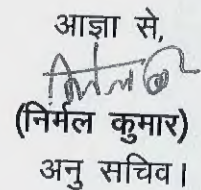 आज्ञा से,
निर्मल
(निर्मल कुमार)
अनु सचिव।